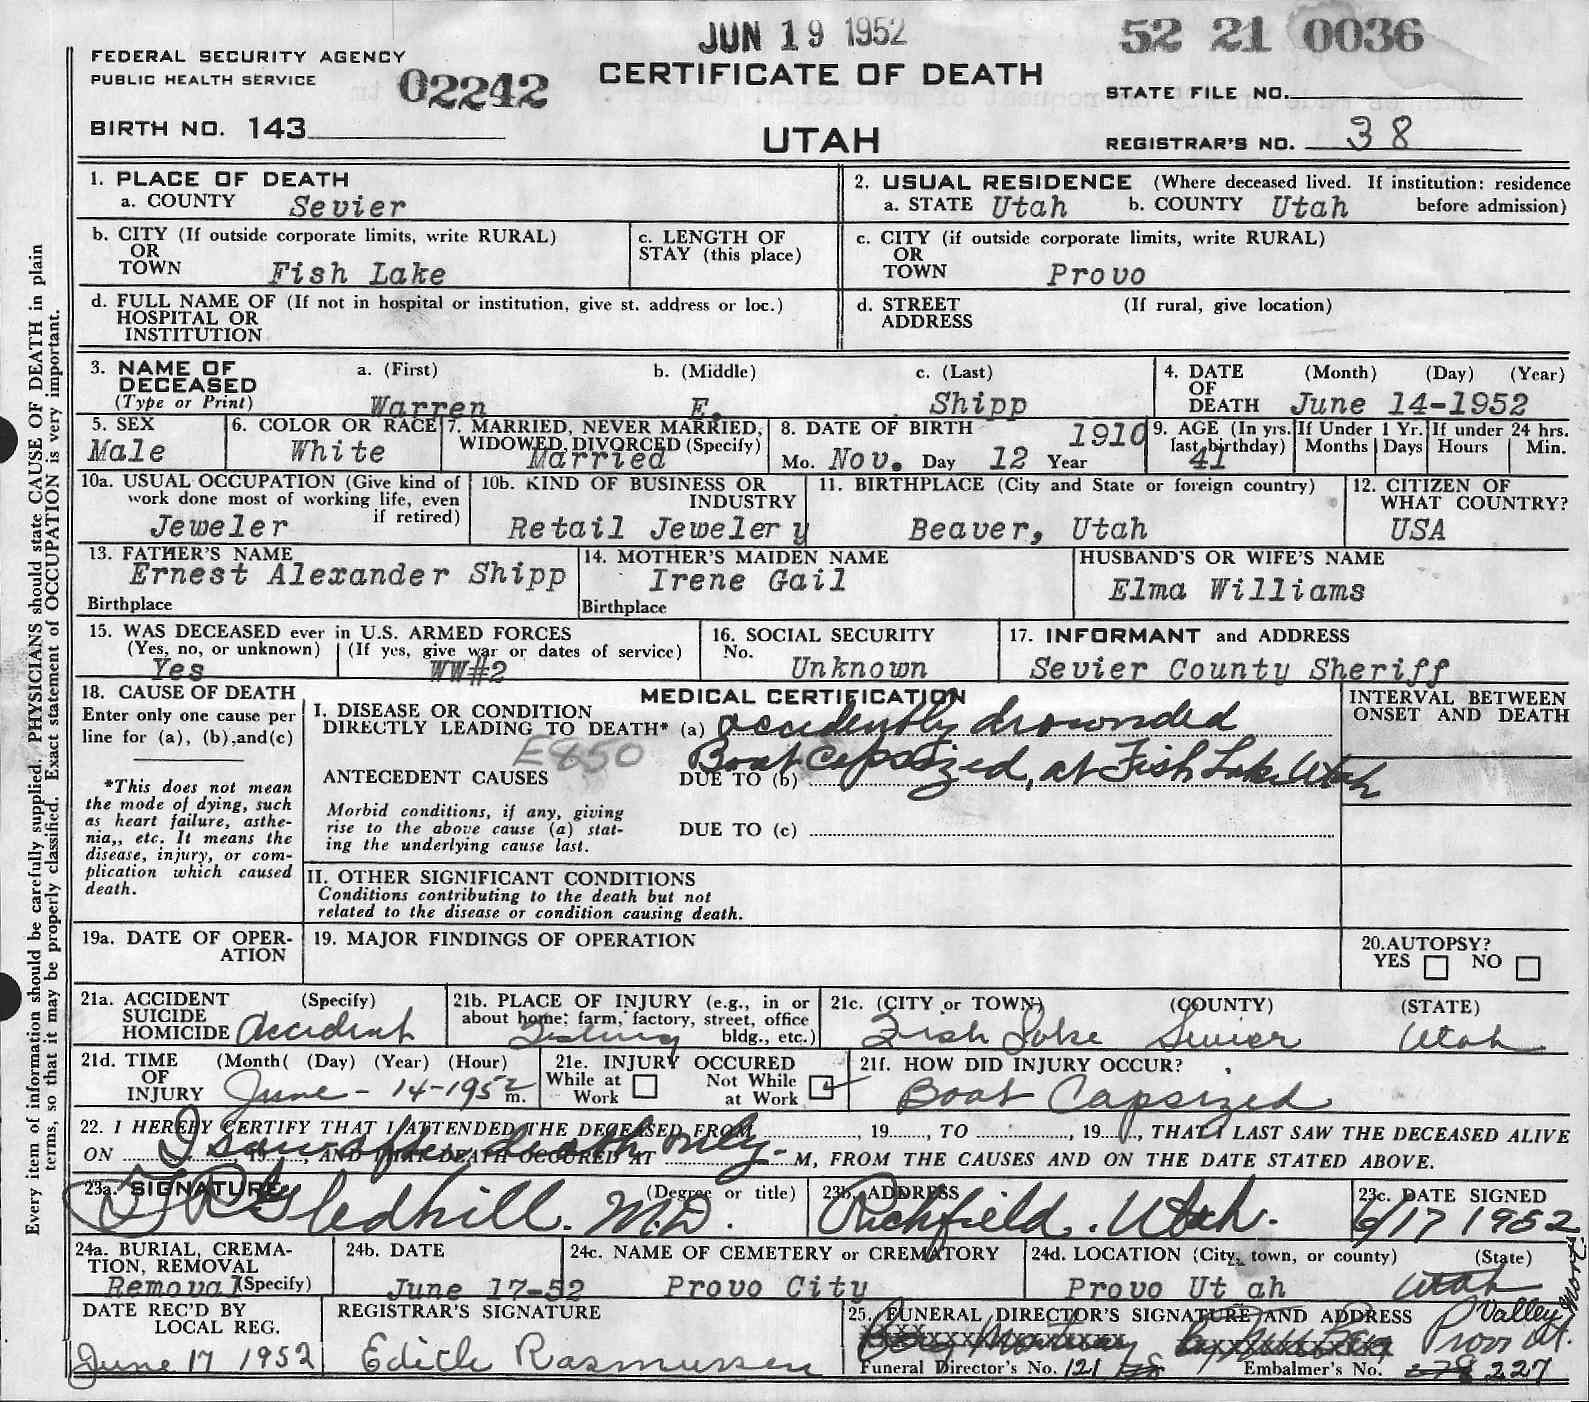 JUN 19 1952
52 21 0036
FEDERAL SECURITY AGENCY
PUBLIC HEALTH SERVICE
02242
CERTIFICATE OF DEATH
STATE FILE NO.
BIRTH NO. 143
UTAH
REGISTRAR'S NO. 38
1. PLACE OF DEATH
a. COUNTY Sevier
2. USUAL RESIDENCE (Where deceased lived. If institution: residence before admission)
a. STATE Utah b. COUNTY Utah
b. CITY (If outside corporate limits, write RURAL)
OR
TOWN Fish Lake
c. LENGTH OF
STAY (this place)
c. CITY (if outside corporate limits, write RURAL)
OR
TOWN Provo
d. FULL NAME OF (If not in hospital or institution, give st. address or loc.)
HOSPITAL OR
INSTITUTION
d. STREET (If rural, give location)
ADDRESS
3. NAME OF DECEASED (Type or Print)
a. (First) b. (Middle) c. (Last)
Warren E. Shipp
4. DATE OF DEATH (Month) (Day) (Year)
June 14-1952
5. SEX
Male
6. COLOR OR RACE
White
7. MARRIED, NEVER MARRIED,
WIDOWED, DIVORCED (Specify)
Married
8. DATE OF BIRTH 1910
Mo. Nov. Day 12 Year
9. AGE (In yrs. last birthday)
41
If Under 1 Yr.
Months Days
If under 24 hrs.
Hours Min.
10a. USUAL OCCUPATION (Give kind of
work done most of working life, even
if retired)
Jeweler
10b. KIND OF BUSINESS OR
INDUSTRY
Retail Jewelery
11. BIRTHPLACE (City and State or foreign country)
Beaver, Utah
12. CITIZEN OF
WHAT COUNTRY?
USA
13. FATHER'S NAME
Ernest Alexander Shipp
Birthplace
14. MOTHER'S MAIDEN NAME
Irene Gail
Birthplace
HUSBAND'S OR WIFE'S NAME
Elma Williams
15. WAS DECEASED ever in U.S. ARMED FORCES
(Yes, no, or unknown) (If yes, give war or dates of service)
Yes WW#2
16. SOCIAL SECURITY
No. Unknown
17. INFORMANT and ADDRESS
Sevier County Sheriff
18. CAUSE OF DEATH
Enter only one cause per
line for (a), (b),and(c)
*This does not mean
the mode of dying, such
as heart failure, asthe-
nia,, etc. It means the
disease, injury, or com-
plication which caused
death.
MEDICAL CERTIFICATION
INTERVAL BETWEEN
ONSET AND DEATH
I. DISEASE OR CONDITION
DIRECTLY LEADING TO DEATH* (a) accidently drownded
E850
ANTECEDENT CAUSES
DUE TO (b) Boat Capsized, at Fish Lake Utah
Morbid conditions, if any, giving
rise to the above cause (a) stat-
ing the underlying cause last.
DUE TO (c)
II. OTHER SIGNIFICANT CONDITIONS
Conditions contributing to the death but not
related to the disease or condition causing death.
19a. DATE OF OPER-
ATION
19. MAJOR FINDINGS OF OPERATION
20.AUTOPSY?
YES NO
21a. ACCIDENT (Specify)
SUICIDE
HOMICIDE Accident
21b. PLACE OF INJURY (e.g., in or
about home; farm, factory, street, office
bldg., etc.)
Fishing
21c. (CITY or TOWN) (COUNTY) (STATE)
Fish Lake Sevier Utah
21d. TIME (Month( (Day) (Year) (Hour)
OF
INJURY June - 14-1952 m.
21e. INJURY OCCURED
While at Work Not While at Work
21f. HOW DID INJURY OCCUR?
Boat Capsized
22. I HEREBY CERTIFY THAT I ATTENDED THE DECEASED FROM , 19 , TO , 19 , THAT I LAST SAW THE DECEASED ALIVE
I saw after death only-
ON , 19 , AND THAT DEATH OCCURED AT M, FROM THE CAUSES AND ON THE DATE STATED ABOVE.
23a. SIGNATURE (Degree or title)
Gledhill. M.D.
23b. ADDRESS
Richfield. Utah.
23c. DATE SIGNED
6/17 1952
24a. BURIAL, CREMA-
TION, REMOVAL
Removal (Specify)
24b. DATE
June 17-52
24c. NAME OF CEMETERY or CREMATORY
Provo City
24d. LOCATION (City, town, or county) (State)
Provo Ut ah Utah
DATE REC'D BY
LOCAL REG.
June 17 1952
REGISTRAR'S SIGNATURE
Edith Rasmussen
25. FUNERAL DIRECTOR'S SIGNATURE AND ADDRESS
Valley
Provo Ut.
Funeral Director's No. 121
Embalmer's No. 227
Every item of information should be carefully supplied. PHYSICIANS should state CAUSE OF DEATH in plain
terms, so that it may be properly classified. Exact statement of OCCUPATION is very important.